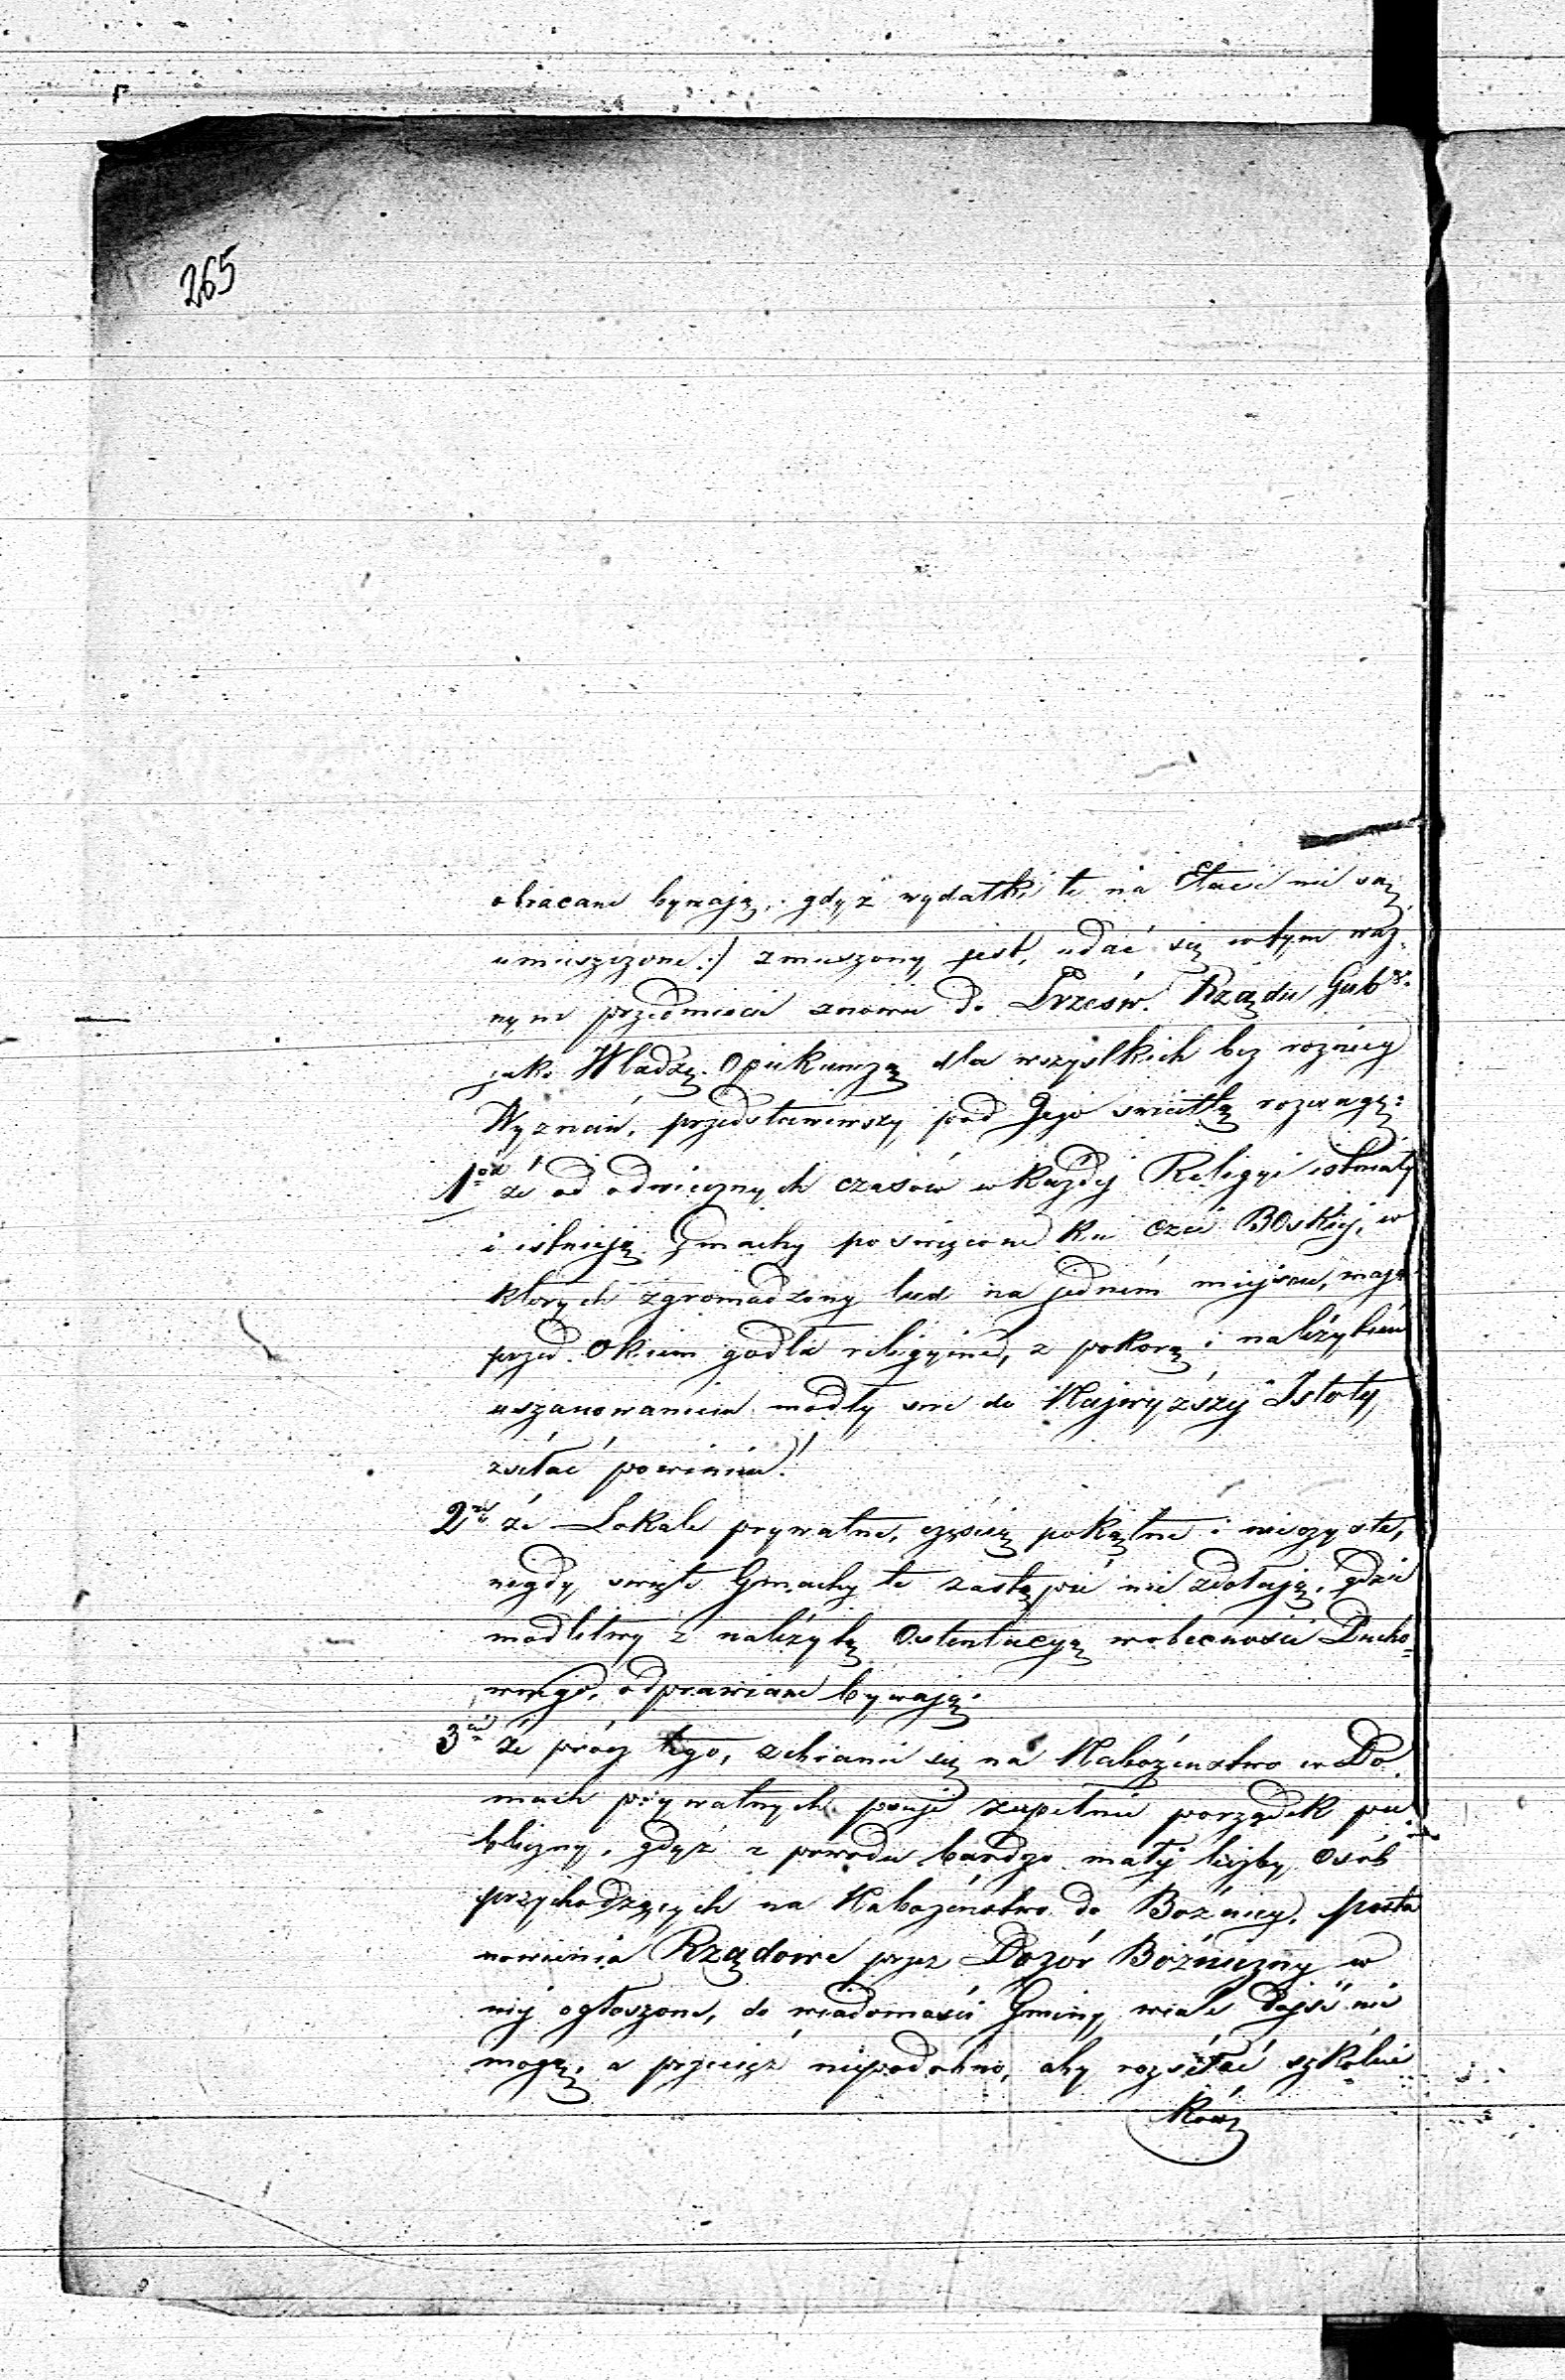 265
obracane bywają, gdyż wydatki te na Etacie nie są
umieszczone :/ zmuszony jest, udać się w tym waż-
nym przedmiocie znowu do Prześw. Rządu Gub.
jako Władzę Opiekunczą dla wszystkich bez roznicy
Wyznań, przedstawiwszy pod Jego swiatłą rozwagę:
1od że od odwiecznych czasów w każdej Religyi istniały
i istnieją Gmachy poswięcone ku Czci Boskiej, w
ktorych zgromadzony lud na jednem miejscu, mając
przed Okiem godła religyine, z pokorą i należytem
uszanowaniem modły swe do Najwyższej Istoty
zsełać powinien!
2re że Lokale prywatne, częscią pokątne i nieczyste,
nigdy swięte Gmachy te zastąpić nie zdołają, gdzie
modlitwy z należytą Ostentacyą w obecności Ducho-
wnego, odprawiane bywają.
3cie że prócz tego, zebranie się na Nabożenstwo w Do-
mach prywatnych psuje zupełnie porządek pu-
bliczny, gdyż z powodu bardzo małej liczby Osób
przychodzących na Nabożenstwo do Bożnicy, posta
nowienia Rządowe przez Dozór Bóżniczny w
niej ogłoszone, do wiadomości Gminy wcale dojść nie
mogą, a przecież niepodobno, aby rozsełać szkólni
ków